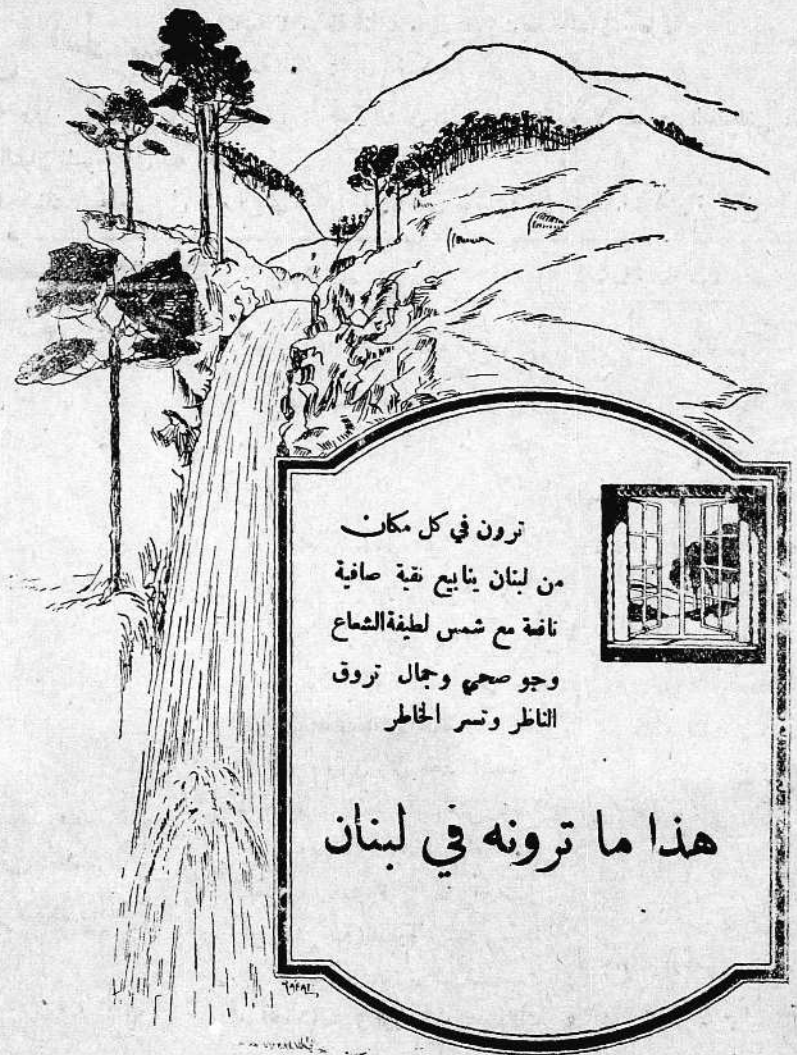 ترون في كل مكان
من لبنان ينابيع نقية صافية
نافعة مع شمس لطيفة الشعاع
وجو صحي وجمال تروق
الناظر وتسر الخاطر
هذا ما ترونه في لبنان